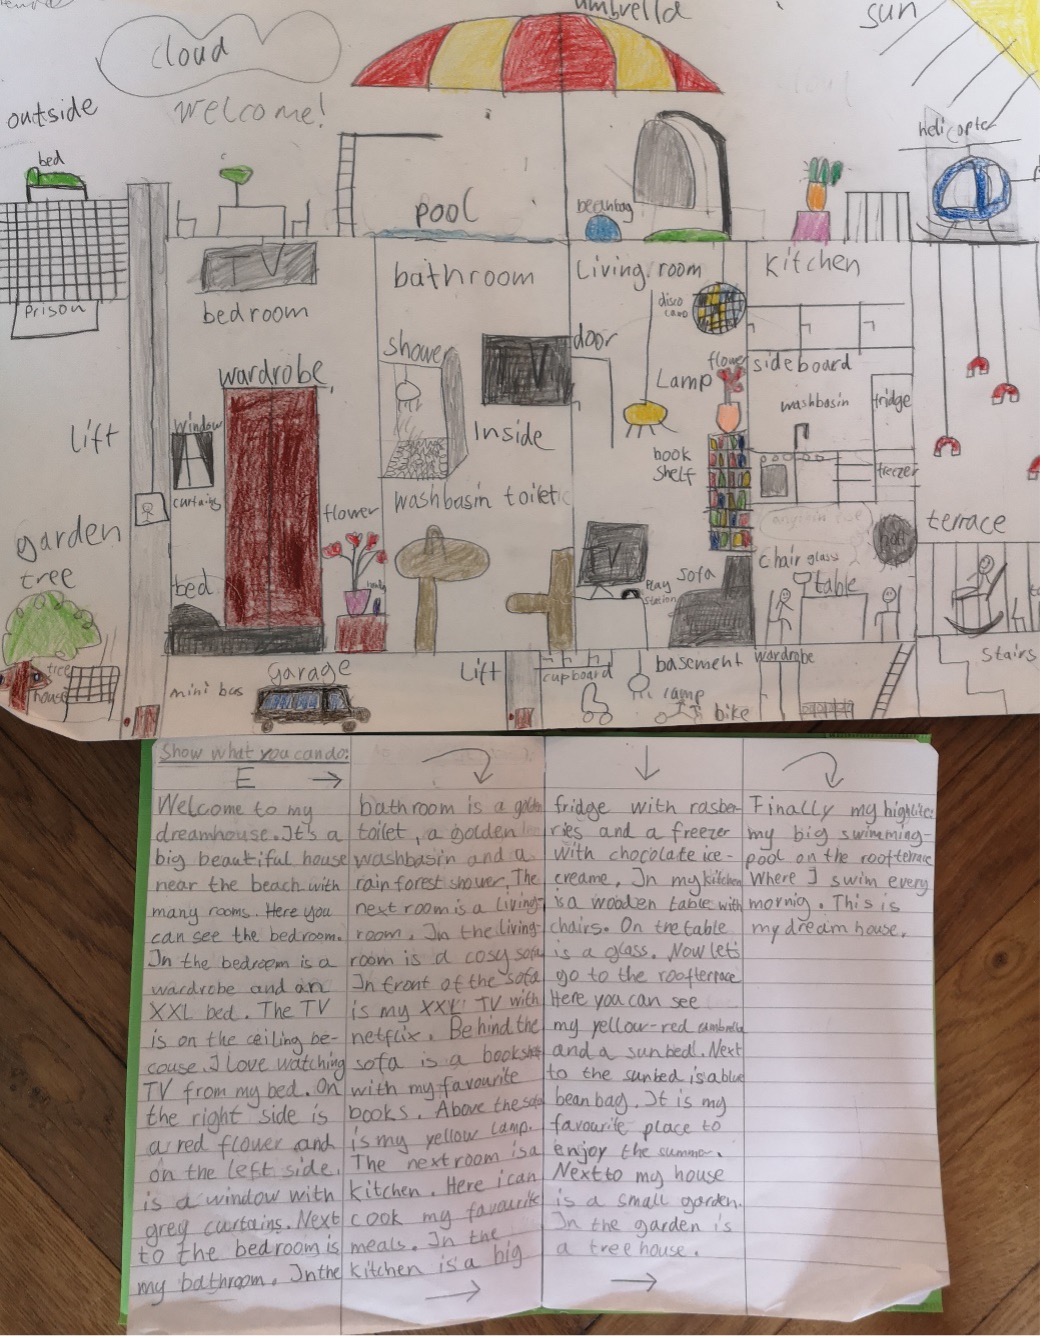 umbrella
sun
cloud
Welcome!
outside
helicopter
bed
pool
beanbag
TV
Prison
bedroom
bathroom
Living room
Kitchen
disco
door
shower
wardrobe
flower
sideboard
Lamp
TV
washbasin
fridge
lift
window
Inside
book
shelf
freezer
curtains
washbasin toilet
flower
terrace
garden
tree
chair glass
table
TV
Play
station
sofa
bed
tree
house
mini bus
Garage
Lift
cupboard
basement
wardrobe
Stairs
lamp
bike
Show what you can do:
E
Welcome to my
dreamhouse. It's a
big beautiful house
near the beach with
many rooms. Here you
can see the bedroom.
In the bedroom is a
wardrobe and an
XXL bed. The TV
is on the ceiling be-
couse I love watching
TV from my bed. On
the right side is
a red flower and
on the left side
is a window with
grey curtains. Next
to the bedroom is
my bathroom. In the
bathroom is a golden
toilet, a golden
washbasin and a
rain forest shower. The
next room is a living-
room. In the living-
room is a cosy sofa
In front of the sofa
is my XXL TV with
netflix. Behind the
sofa is a bookshelf
with my favourite
books. Above the sofa
is my yellow lamp.
The next room is a
kitchen. Here i can
cook my favourite
meals. In the
kitchen is a big
fridge with rasber-
ries and a freezer
with chocolate ice-
creame. In my kitchen
is a wooden table with
chairs. On the table
is a glass. Now let's
go to the roofterrace
Here you can see
my yellow-red umbrella
and a sunbed. Next
to the sunbed is a blue
bean bag. It is my
favourite place to
enjoy the summer.
Next to my house
is a small garden.
In the garden is
a tree house.
Finally my highlite:
my big swimming-
pool on the roofterrace
Where I swim every
mornig. This is
my dream house.